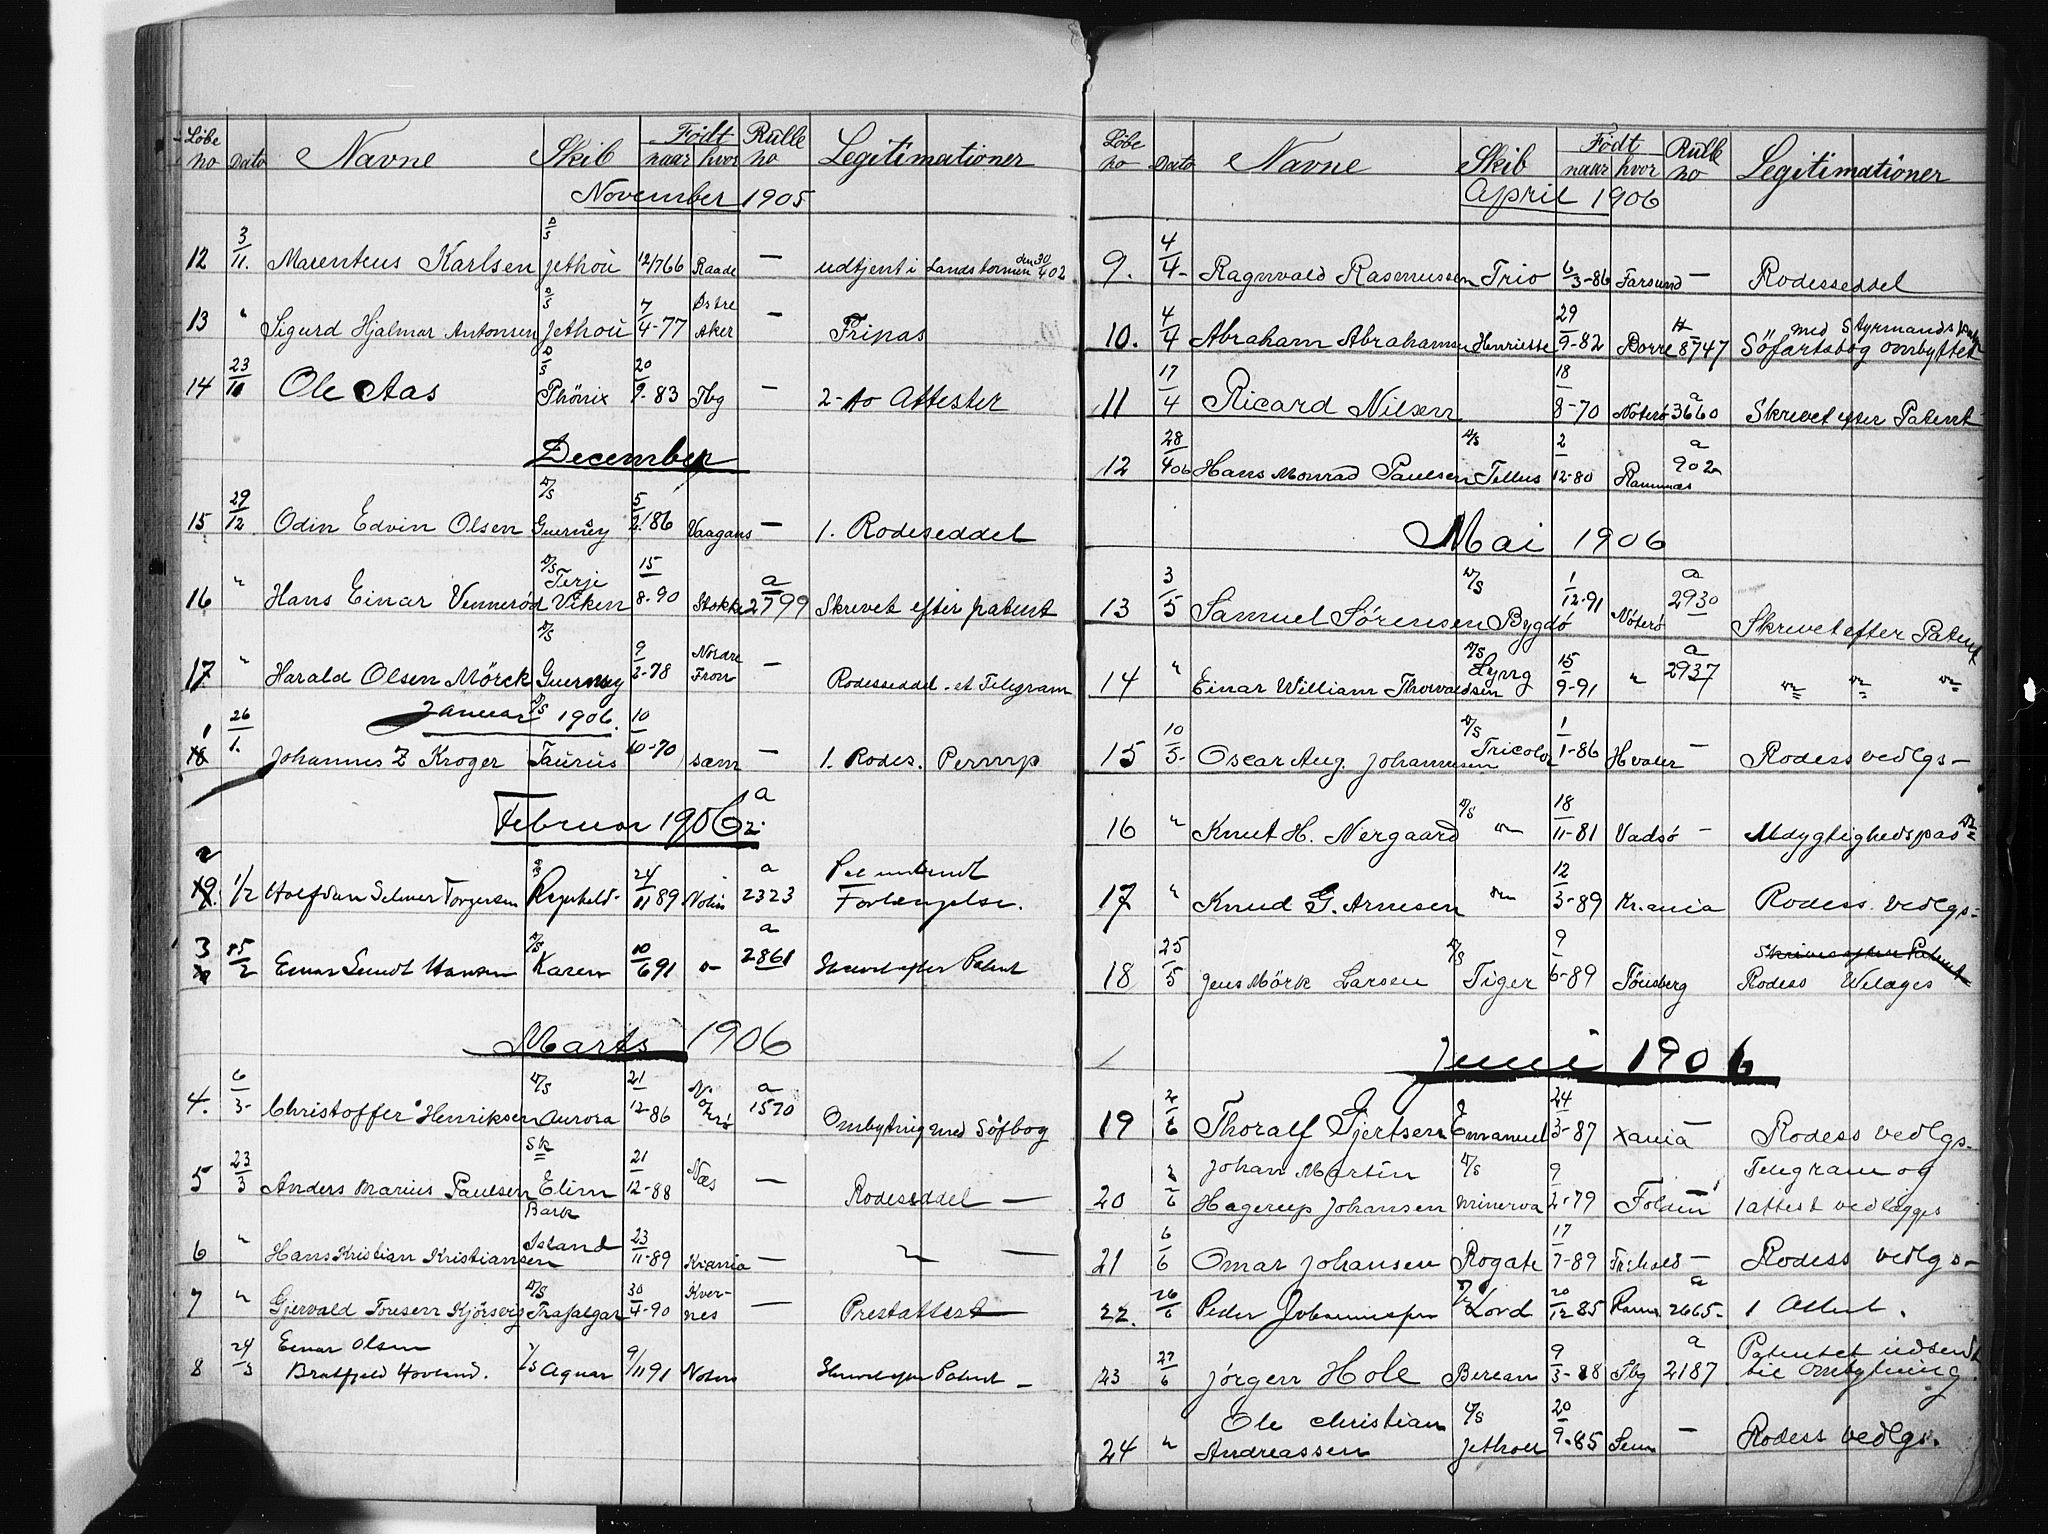 Løbe no Dato Navne Skib Født naar hvor Rulle no Legitimationer
November 1905
12 3/11. Marenteus Karlsen D/S Jethou 12/766 Raade — udtjent i Landstormen den 30/4 02
13 " Sigurd Hjalmar Antonsen D/S Jethou 7/4-77 Østre Aker — Fripas
14 23/11 Ole Aas D/S Phönix 20/9-83 Tbg — 2-to Attester
December
15 29/12 Odin Edvin Olsen D/S Guernsey 5/2 86 Vaagans — 1. Rodeseddel
16 " Hans Einar Vennerød D/S Terje Viken 15/8-90 Stokke a 2799 Skrevet efter patent
17 " Harald Olsen Mörck D/S Guernsey 9/2-78 Nordre Fron — Rodesseddel. et Telegram
Januar 1906.
1 18 26/1. Johannes Z Kroger D/S Taurus 10/10-70 sæm — 1. Rodes. Permp
Februar 1906
2 19. 1/2 Halfdan Selmer Torgersen Ragnhild 24/11 89 Nøtterø a 2323 Forlængelse.
3 15/2 Einar Lundt Hansen D/S Karen 10/6 91 a 2861 Skrevet efter Patent
Marts 1906
4. 6/3- Christoffer Henriksen D/S Aurora 21/12-86 Nøtterø a 1570 Ombytning med Söfbog
5 23/3 Anders Marius Paulsen Sk Elim 21/12-88 Næs — Rodeseddel —
6 " Hans Kristian Kristiansen Bark Island 23/11-89 Krania — " —
7 " Gjervald Toresen Kjörsvig D/S Trafalgar 30/4-90 Kvernes — Prestattest
8 24/3 Einar Olsen Bratfjeld Hovland. D/S Aquar 9/11 91 Nøterø Skrevet efter Patent —
Løbe no Dato Navne Skib Født naar hvor Rulle no Legitimationer
April 1906
9. 4/4- Ragnvald Rasmussen Trio 6/3-86 Farsund — Rodesseddel
10. 4/4 Abraham Abrahamsen Henriette 29/9-82 Borre 8747 Söfartsbog ombyttet med Styrmands
11 17/4 Ricard Nilsen 18/8-70 Nöterö a 3660 Skrevet efter Patent
12 28/4 06 Hans Monrad Paulsen D/S Tellus 2/12-80 Ramnæs a 902
Mai 1906
13 3/5 Samuel Sørensen D/S Bygdø 1/12-91 Nöterø a 2930 Skrevet efter Patent
14 " Einar William Thorvaldsen D/S Lyng 15/9-91 " a 2937 " " "
15 10/5- Oscar Aug. Johannesen D/S Tricolor 1/1-86 Hvaler — Rodess vedlgs —
16 " Knut H. Nergaard D/S " 18/11-81 Vadsö — Udygtighedspas
17 " Knud G. Arnesen " 12/3-89 Kr.ania Rodess vedlgs-
18 25/5 Jens Mörk Larsen D/S Tiger 9/6-89 Tönsberg Skrives efter Patent Rodess Vedlæges
Juni 1906
19 2/6 Thoralf Gjertsen Emanuel 24/3-87 Xania — Rodess vedlgs.
20 2/6 Johan Martin Hagerup Johansen D/S Minerva 9/2-79 Folden — Telegram og 1 attest vedlægges
21 6/6 Omar Johansen Rogate 17/7-89 — Rodess vedlgs —
22. 26/6 Peder Johannessen D/S Lord 20/12 85 Ramn a 2665- 1 Attest.
23 27/6 Jörgen Hole Berean 9/3-88 Tbg a 2187 Patentet udsendt til Ombytning
24 " Ole Christian Andreassen D/S Jethou 20/9-85 Sem — Rodess vedlgs.